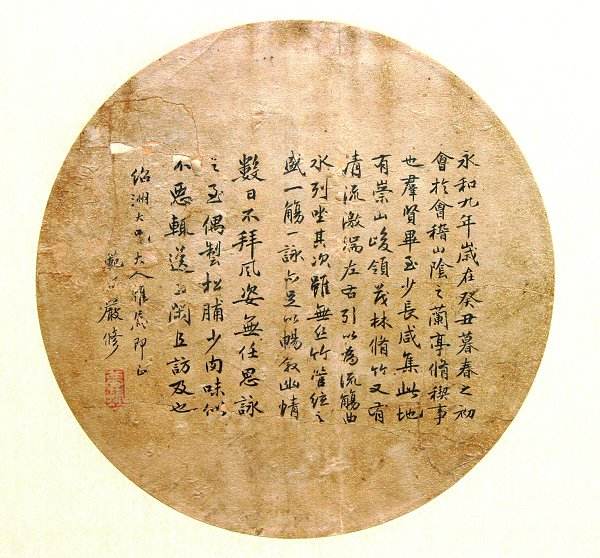 永和九年歲在癸丑暮春之初
會於會稽山陰之蘭亭脩稧事
也羣賢畢至少長咸集此地
有崇山峻領茂林脩竹又有
清流激湍左右引以為流觴曲
水列坐其次雖無絲竹管絃之
盛一觴一詠亦足以暢敘幽情
數日不拜風姿無任思詠
之至偶製松脯少肉味似
不惡輒送上閑且訪及也
紹洲大大人雅即正
範嚴修